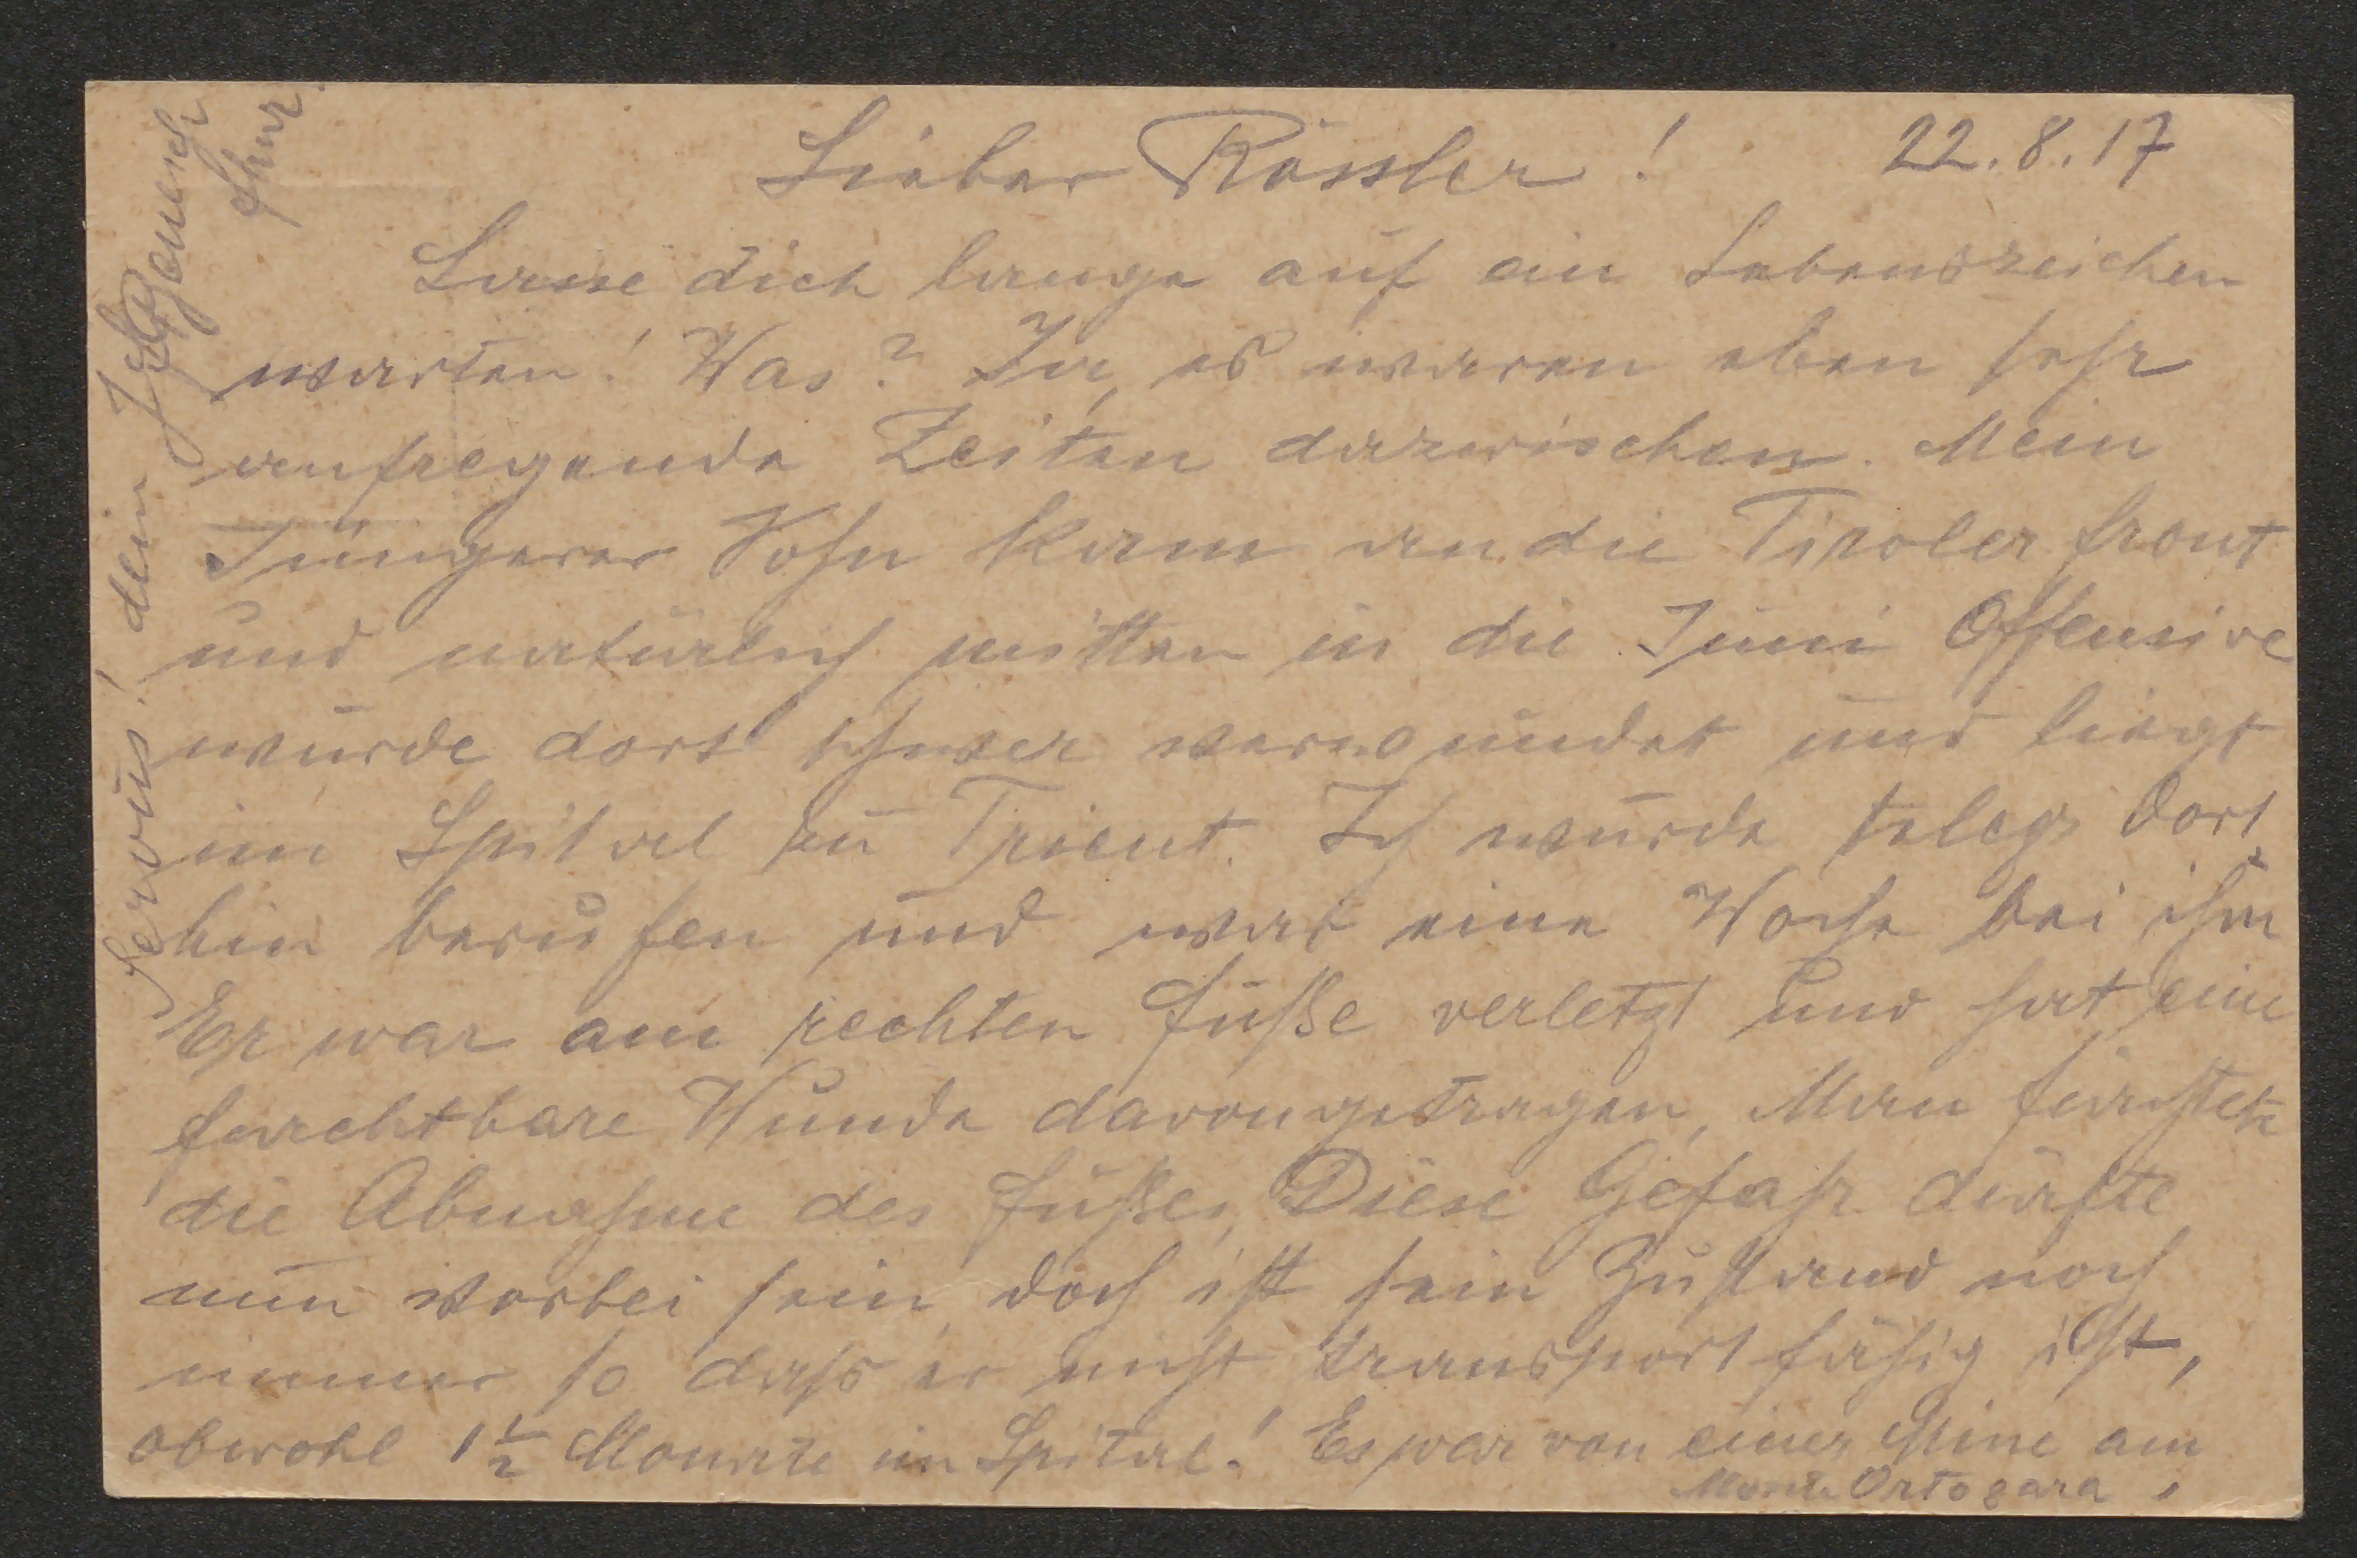 22.8.17
Lieber Rössler!
Lasse dich lange auf ein Lebenszeichen
warten! Was? Ja, es waren eben sehr
aufregende Zeiten dazwischen. Mein
Jüngerer Sohn kam an die Tiroler front
und natürlich mitten in die Juni Offensive
wurde dort schwer verwundet und liegt
im Spital zu Trient. Ich wurde telegr dort
hin berufen und war eine Woche bei ihm
Er war am rechten Fuße verletzt und hat eine
furchtbare Wunde davongetragen, Man fürchtete
die Abnahme des Fußes, Diese Gefahr dürfte
nun vorbei sein, doch ist sein Zustand noch
immer so daß er nicht transportfähig ist,
obwohl 1 1/2 Monate im Spital! Es war von einer Mine am
Monte Ortogara!
Servus! dein